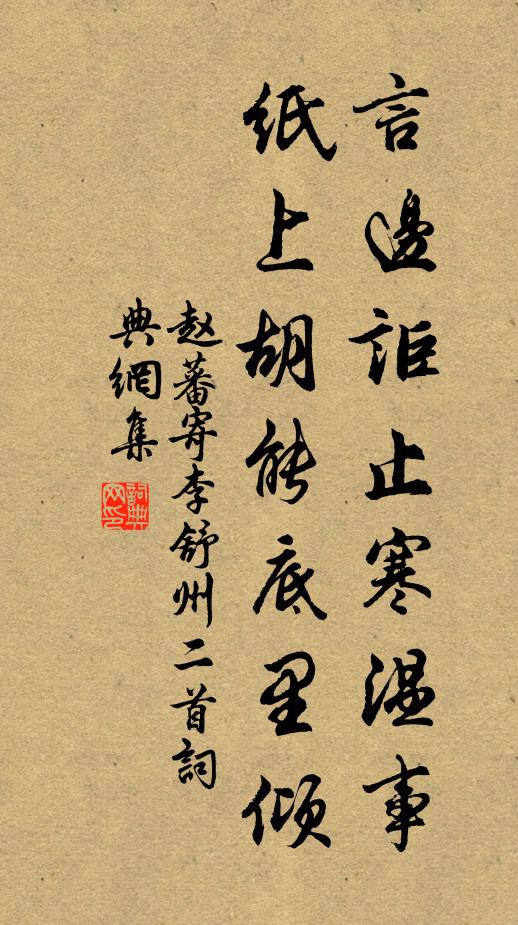 言邊詎止寒温事
纸上胡能底里倾
赵蕃寄李舒州二首詞
典網集
詞典
网印